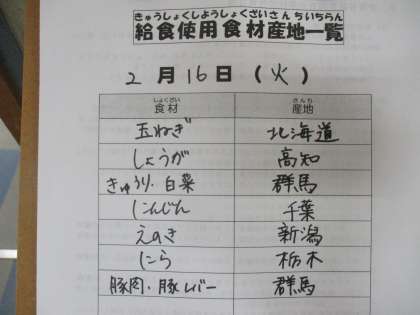 きゅうしょくしようしょくざいさんちいちらん
給食使用食材産地一覧
2月16日(火)
しょくざい さんち
食材 産地
玉ねぎ 北海道
しょうが 高知
きゅうり・白菜 群馬
にんじん 千葉
えのき 新潟
にら 栃木
豚肉・豚レバー 群馬